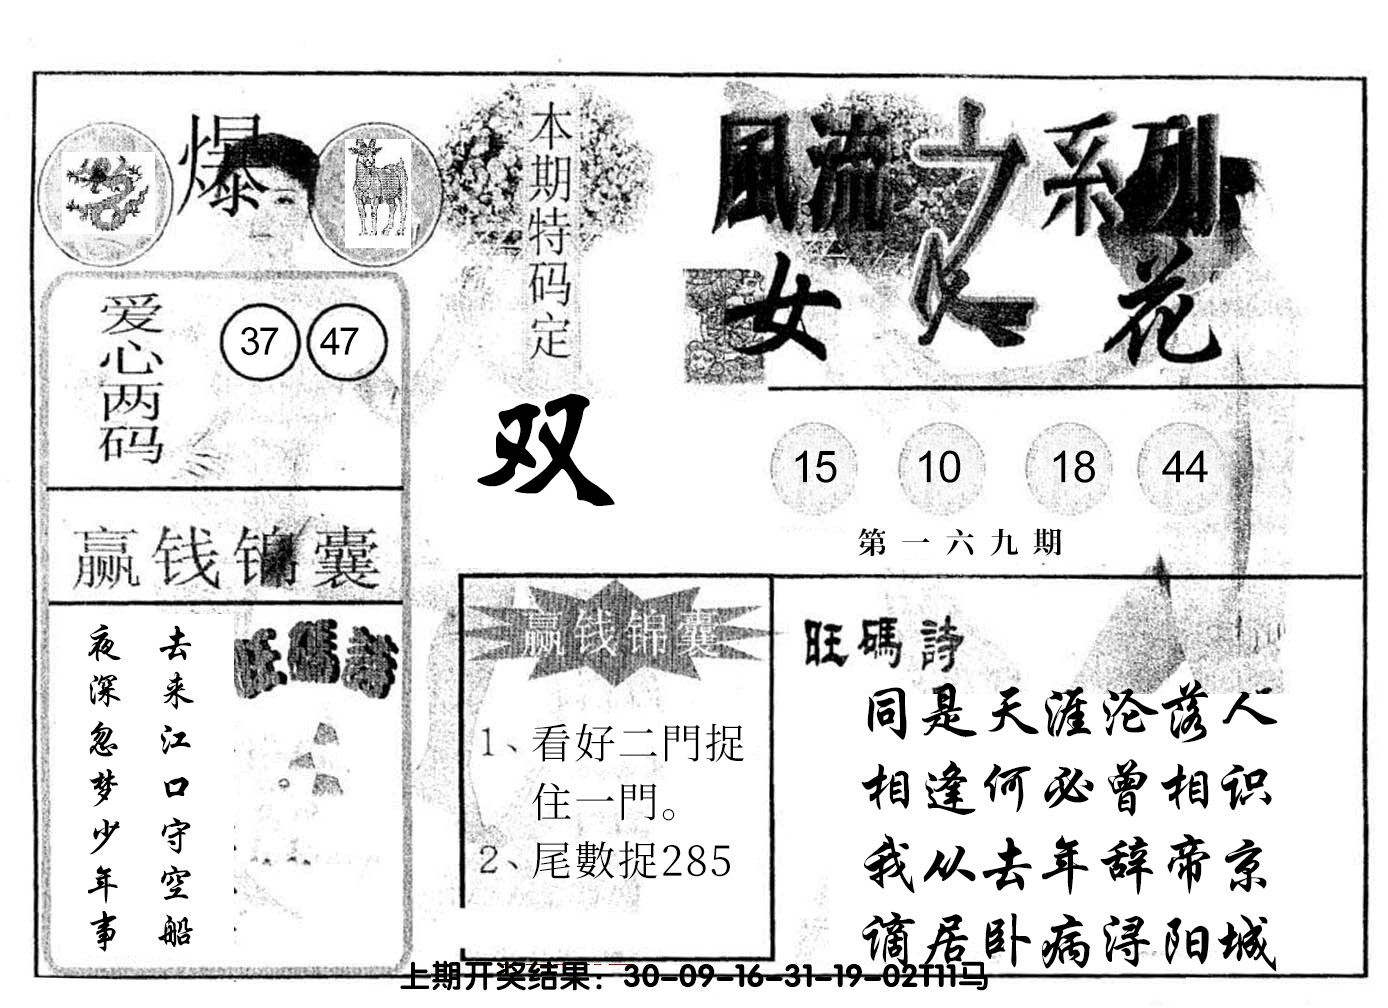 爆
本期特码定
双
風流之系列
女人花
爱心两码
37 47
15 10 18 44
第一六九期
赢钱锦囊
去来江口守空船
夜深忽梦少年事
旺碼詩
赢钱锦囊
1、看好二門捉
住一門。
2、尾數捉285
旺碼詩
同是天涯沦落人
相逢何必曾相识
我从去年辞帝京
谪居卧病浔阳城
上期开奖结果：30-09-16-31-19-02T11马